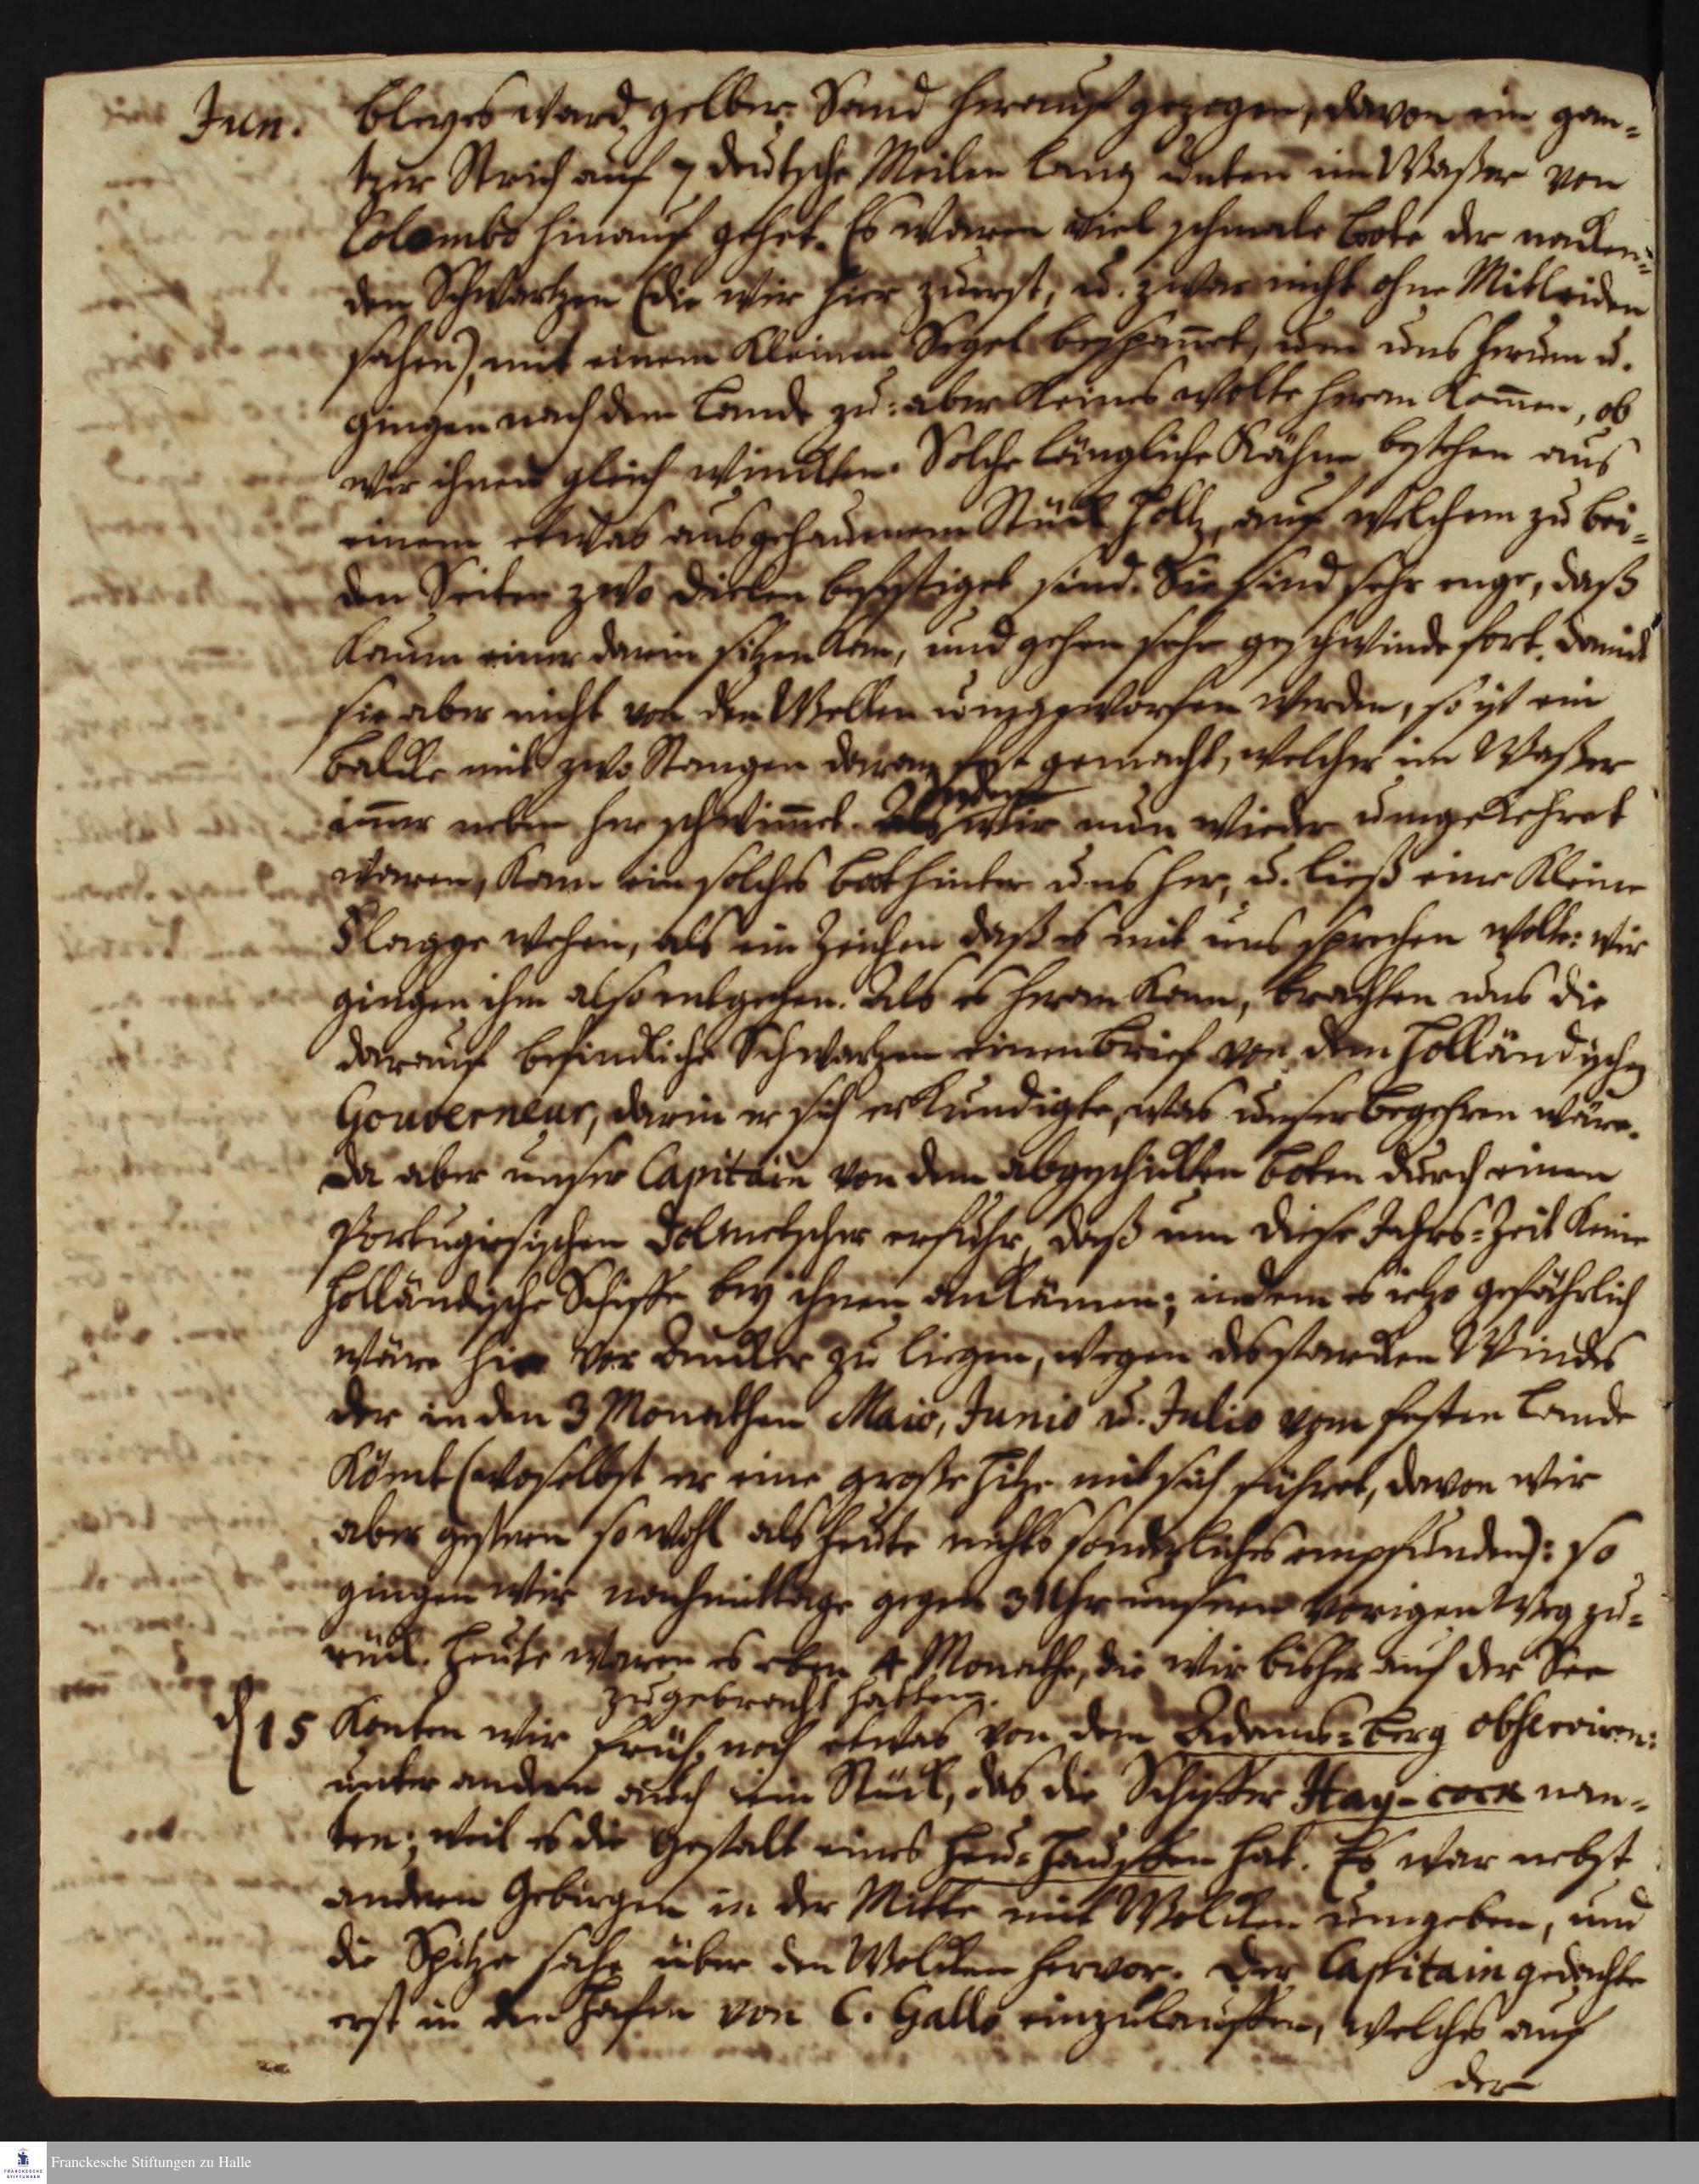 Jun. bleyes ward gelber Sand herauf gezogen, davon ein gan-
tzer Strich auf 7 deutsche Meilen lang unten im Waßer von
Colombo hinauf gehet. Es waren viel schmale Bote der nacken-
den Schwartzen (die wir hier zuerst, u. zwar nicht ohne Mitleiden
sahen), mit einem kleinen Segel bespannet, um uns herum u.
gingen nach dem Lande zu: aber keines wolte heran kommen, ob
wir ihnen gleich winckten. Solche längliche Kähne bestehen aus
einem etwas ausgehauenem Stück Holtz, auf welchem zu bei-
den Seiten zwo Dielen befestiget sind. Sie sind sehr enge, daß
kaum einer darin sitzen kan, und gehen sehr geschwinde fort. Damit
sie aber nicht von den Wellen umgeworfen werden, so ist ein
Balcke mit zwo Stangen daran fest gemacht, welcher im Waßer
immer neben her schwimmet. Indem wir nun wieder umgekehret
waren, kam ein solches Bot hinter uns her, u. ließ eine kleine
Flagge wehen, als ein Zeichen daß es mit uns sprechen wolte: wir
gingen ihm also entgegen. Als es heran kam, brachten uns die
darauf befindliche Schwartzen einen Brief von dem Holländischen
Gouverneur, darin er sich erkundigte, was unser Begehren wäre.
Da aber unser Capitain von dem abgeschickten Boten durch einen
Portugiesischen Dolmetscher erfuhr, daß um diese Jahrs-Zeit keine
Holländische Schiffe bey ihnen ankämen; indem es ietzo gefährlich
wäre hier vor Ancker zu liegen, wegen des starcken Windes
der in den 3 Monathen Maio, Junio u. Julio vom festen Lande
kömt (woselbst er eine große Hitze mit sich führet, davon wir
aber gestern sowohl als heute nichts sonderliches empfunden): so
gingen wir nachmittage gegen 3 Uhr unsern vorigen Weg zu-
rück. Heute waren es eben 4 Monathe, die wir bisher auf der See
zugebracht hatten.
d 15 Konten wir früh noch etwas von dem Adams-Berg observiren:
unter andern auch ein Stück, das die Schiffer Hay-cock nan-
ten; weil es die Gestalt eines Heu-Hauffen hat. Es war nebst
andern Gebirgen in der Mitte mit Wolcken umgeben, und
die Spitze sahe über den Wolcken hervor. Der Capitain gedachte
erst in den Hafen von C. Gallo einzulauffen, welches auf
der
Franckesche Stiftungen zu Halle